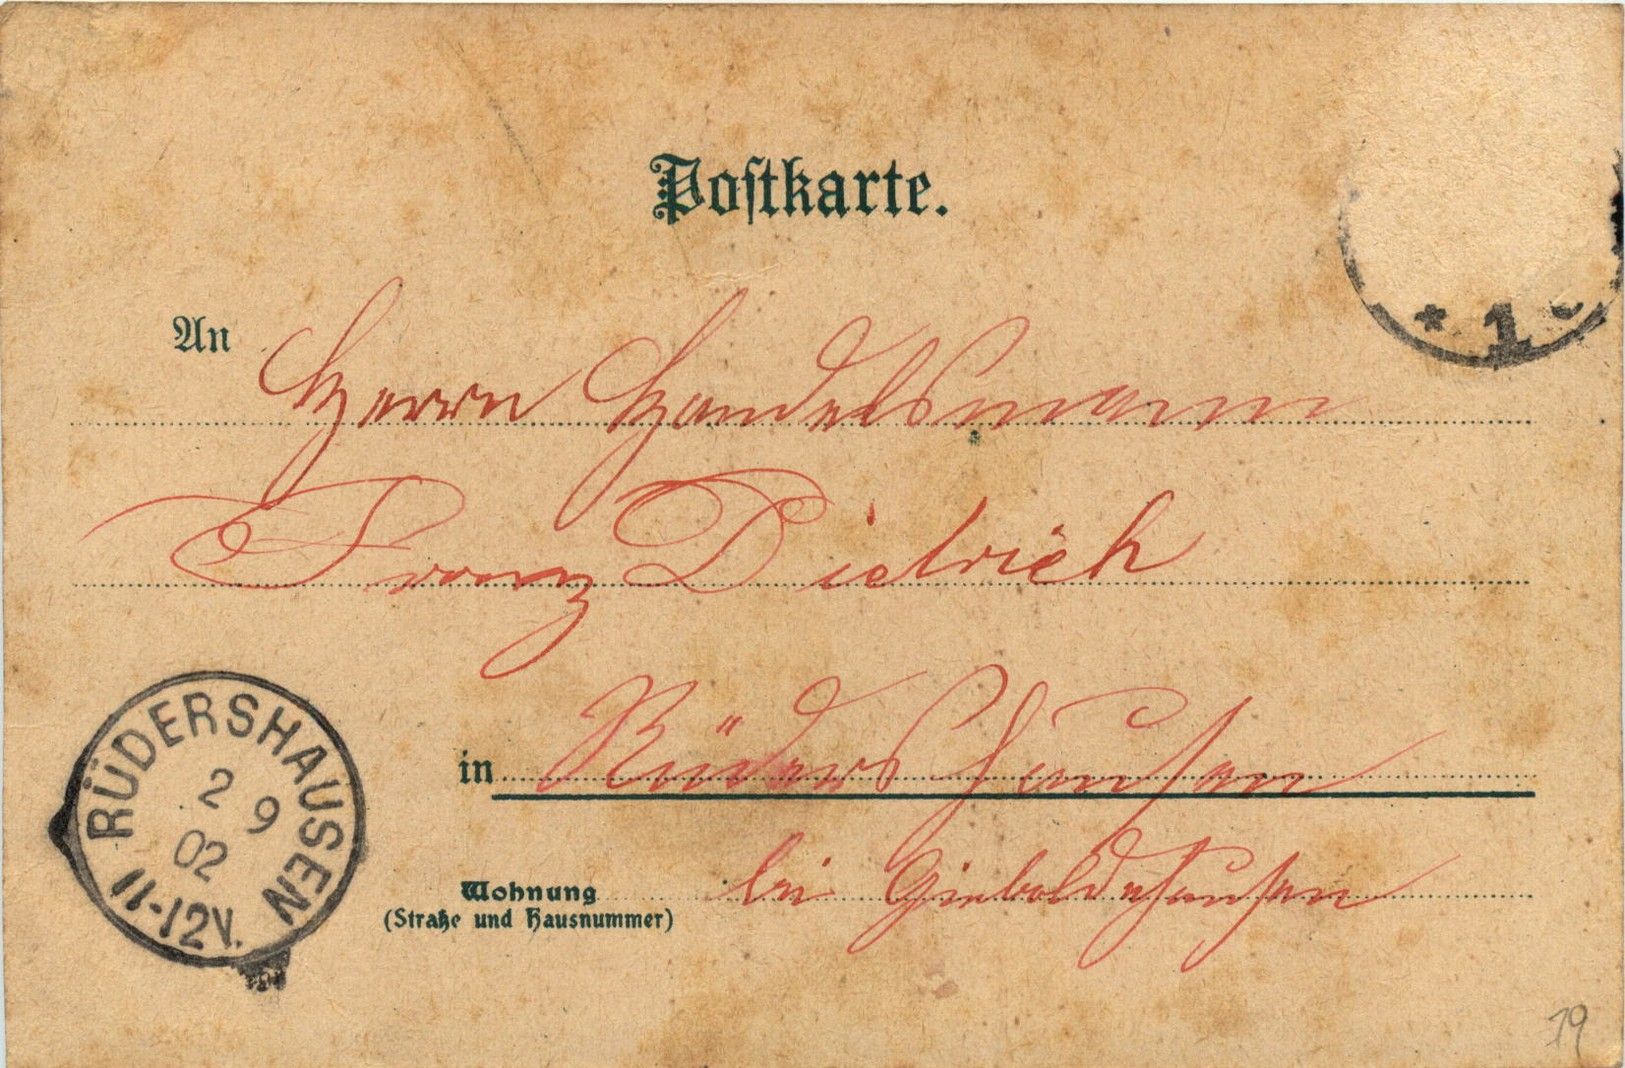 Postkarte.
* 1
An Herrn Handelsmann
Franz Dietrich
in Rüdershausen
Wohnung bei Gieboldehausen
(Straße und Hausnummer)
RÜDERSHAUSEN
2 9
02
11-12V.
19